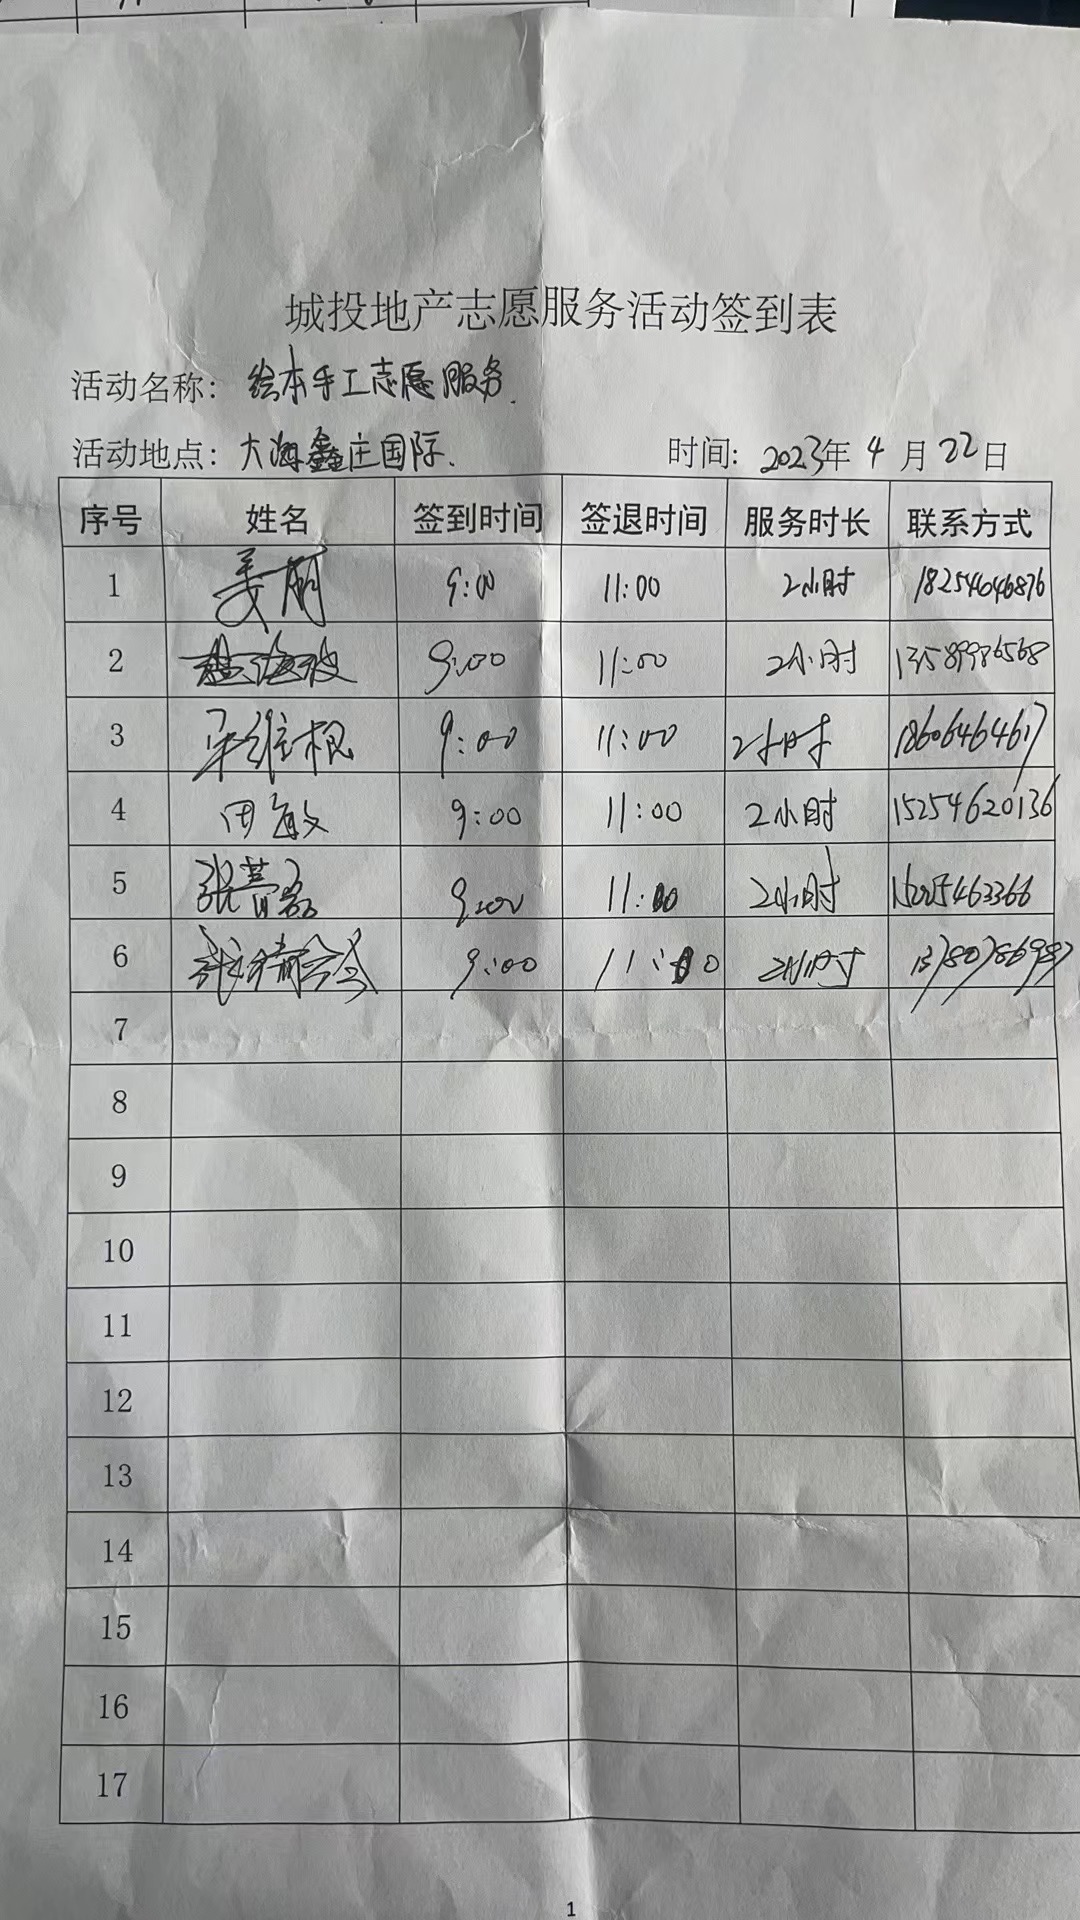 城投地产志愿服务活动签到表
活动名称: 绘本手工志愿服务.
活动地点: 大海鑫庄国际. 时间: 2023年 4 月 22 日
序号 姓名 签到时间 签退时间 服务时长 联系方式
1 姜丽 9:00 11:00 2小时 18254646876
2 9:00 11:00 2小时 13589986568
3 宋维根 9:00 11:00 2小时 18606464617
4 田敏 9:00 11:00 2小时 15254620136
5 9:00 11:00 2小时
6 9:00 11:00 2小时 13780786987
7
8
9
10
11
12
13
14
15
16
17
1